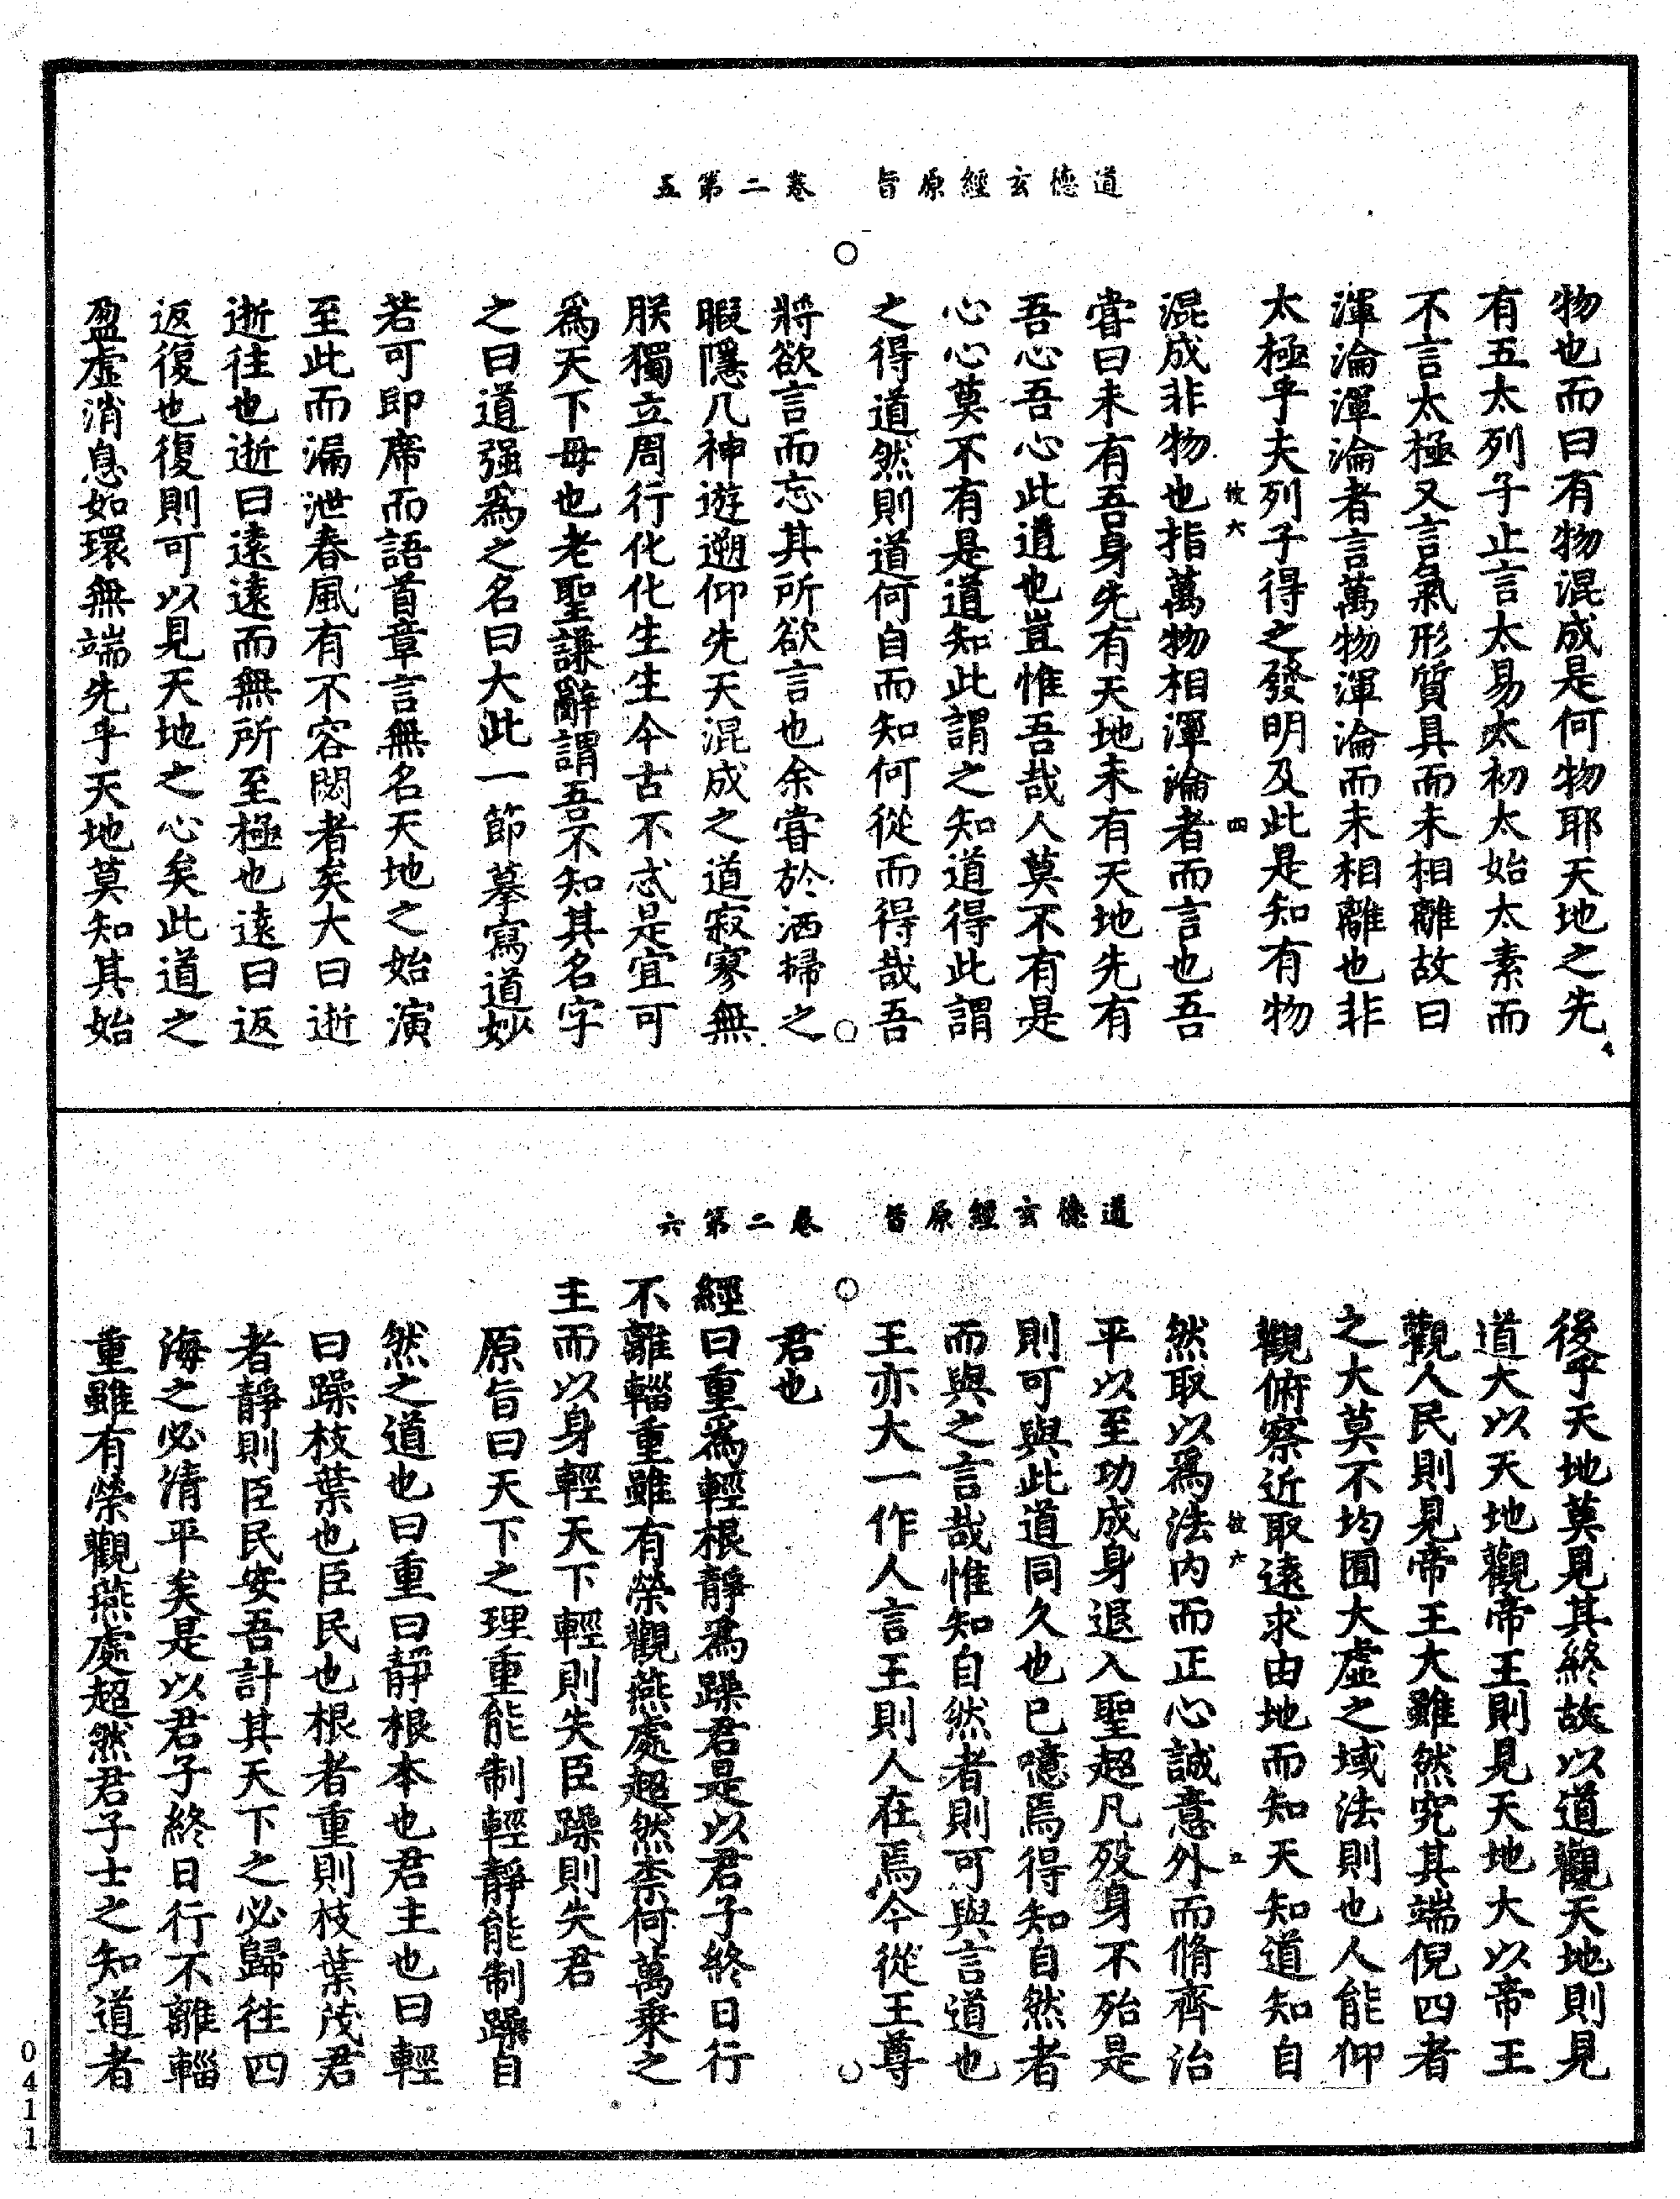 道德玄經原旨　卷二第五
物也而曰有物混成是何物耶天地之先
有五太列子止言太易太初太始太素而
不言太極又言氣形質具而未相離故曰
渾淪渾淪者言萬物渾淪而未相離也非
太極乎夫列子得之發明及此是知有物
彼六　四
混成非物也指萬物相渾淪者而言也吾
嘗曰未有吾身先有天地未有天地先有
吾心吾心此道也豈惟吾哉人莫不有是
心心莫不有是道知此謂之知道得此謂
之得道然則道何自而知何從而得哉吾
將欲言而忘其所欲言也余嘗於洒掃之
暇隱几神遊遡仰先天混成之道寂寥無
朕獨立周行化化生生今古不忒是宜可
爲天下母也老聖謙辭謂吾不知其名字
之曰道强爲之名曰大此一節摹寫道妙
若可即席而語首章言無名天地之始演
至此而漏泄春風有不容閟者矣大曰逝
逝往也逝曰遠遠而無所至極也遠曰返
返復也復則可以見天地之心矣此道之
盈虛消息如環無端先乎天地莫知其始
道德玄經原旨　卷二第六
後乎天地莫見其終故以道觀天地則見
道大以天地觀帝王則見天地大以帝王
觀人民則見帝王大雖然究其端倪四者
之大莫不均囿大虛之域法則也人能仰
觀俯察近取遠求由地而知天知道知自
彼六　五
然取以爲法內而正心誠意外而脩齊治
平以至功成身退入聖超凡歿身不殆是
則可與此道同久也已噫焉得知自然者
而與之言哉惟知自然者則可與言道也
王亦大一作人言王則人在焉今從王尊
君也
經曰重爲輕根靜爲躁君是以君子終日行
不離輜重雖有榮觀燕處超然柰何萬乘之
主而以身輕天下輕則失臣躁則失君
原旨曰天下之理重能制輕靜能制躁自
然之道也曰重曰靜根本也君主也曰輕
曰躁枝葉也臣民也根者重則枝葉茂君
者靜則臣民安吾計其天下之必歸往四
海之必清平矣是以君子終日行不離輜
重雖有榮觀燕處超然君子士之知道者
0411